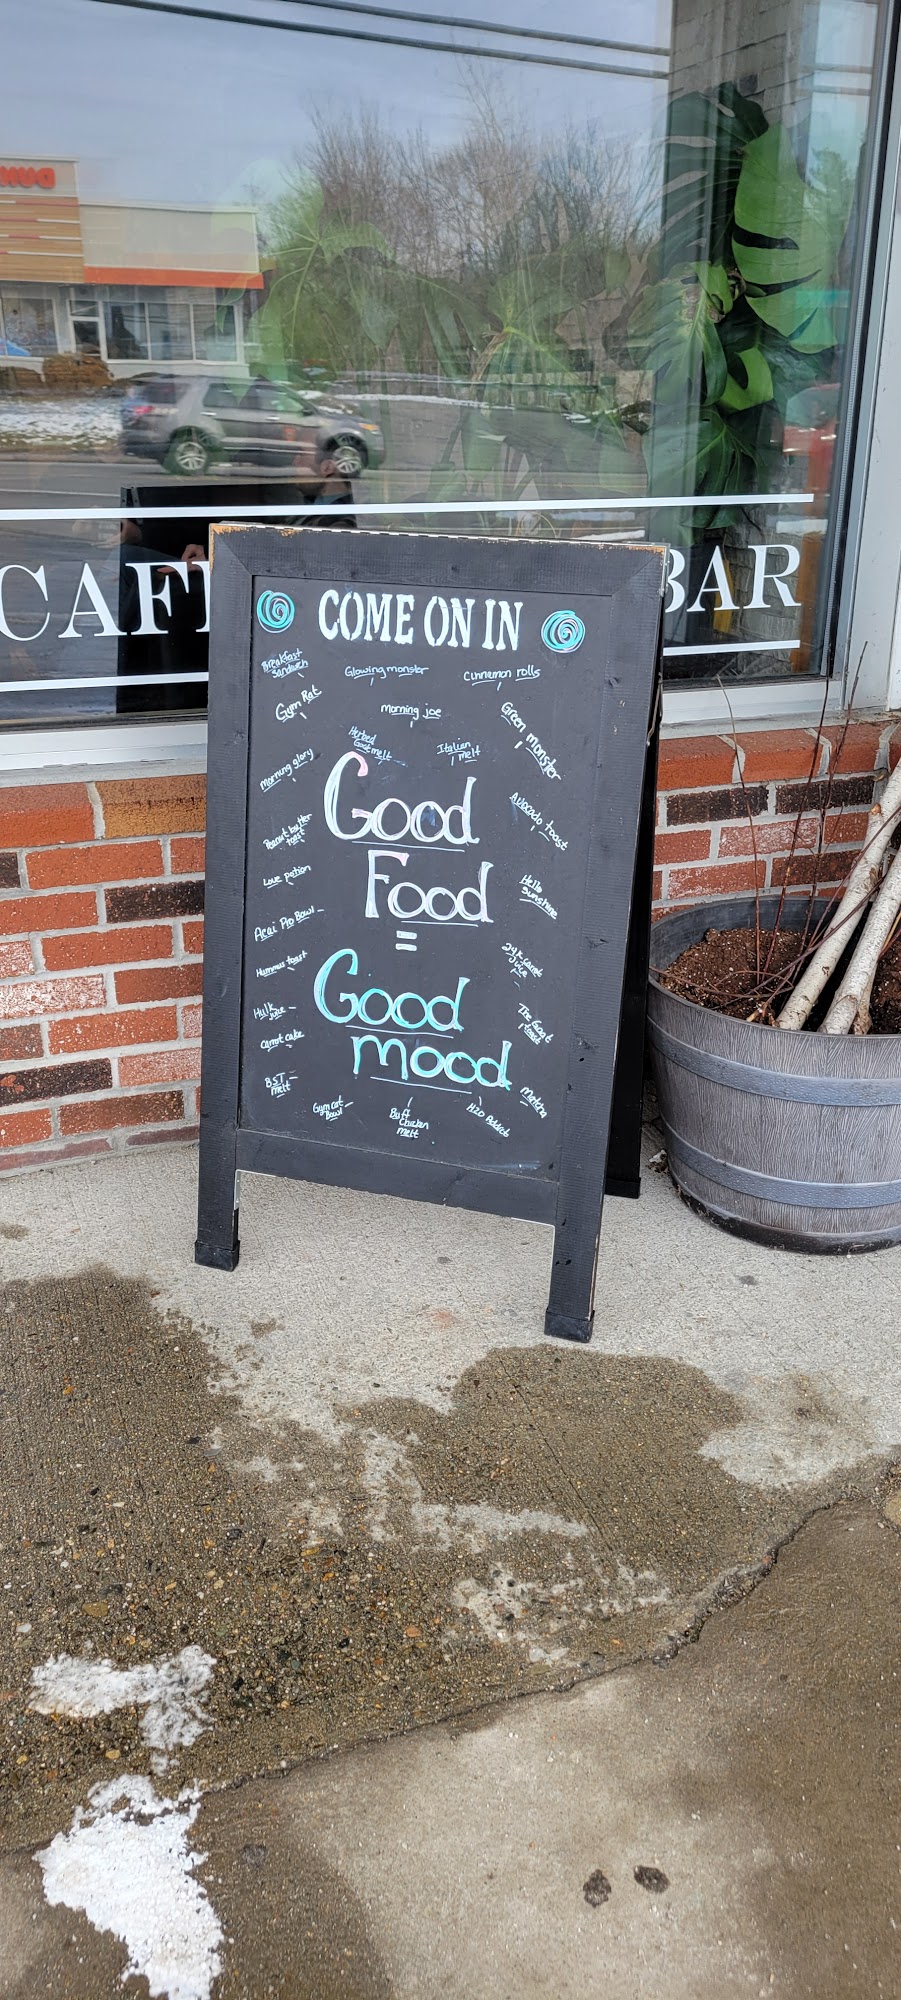 CAFE
BAR
COME ON IN
Breakfast
Sandwich
Glowing monster
Cinnemon rolls
Gym Rat
morning joe
Green monster
Herbed
Goat melt
Italian
melt
morning glory
Good
Food
=
Good
mood
Avocado toast
Peanut butter
toast
Love potion
Hello
Sunshine
Acai Pro Bowl
24K Carrot
Juice
Hummus toast
Hulk
Juice
The Goat
toast
Carrot cake
BST
melt
Matcha
Gym art
Bowl
Buff
Chicken
melt
H2O Addict